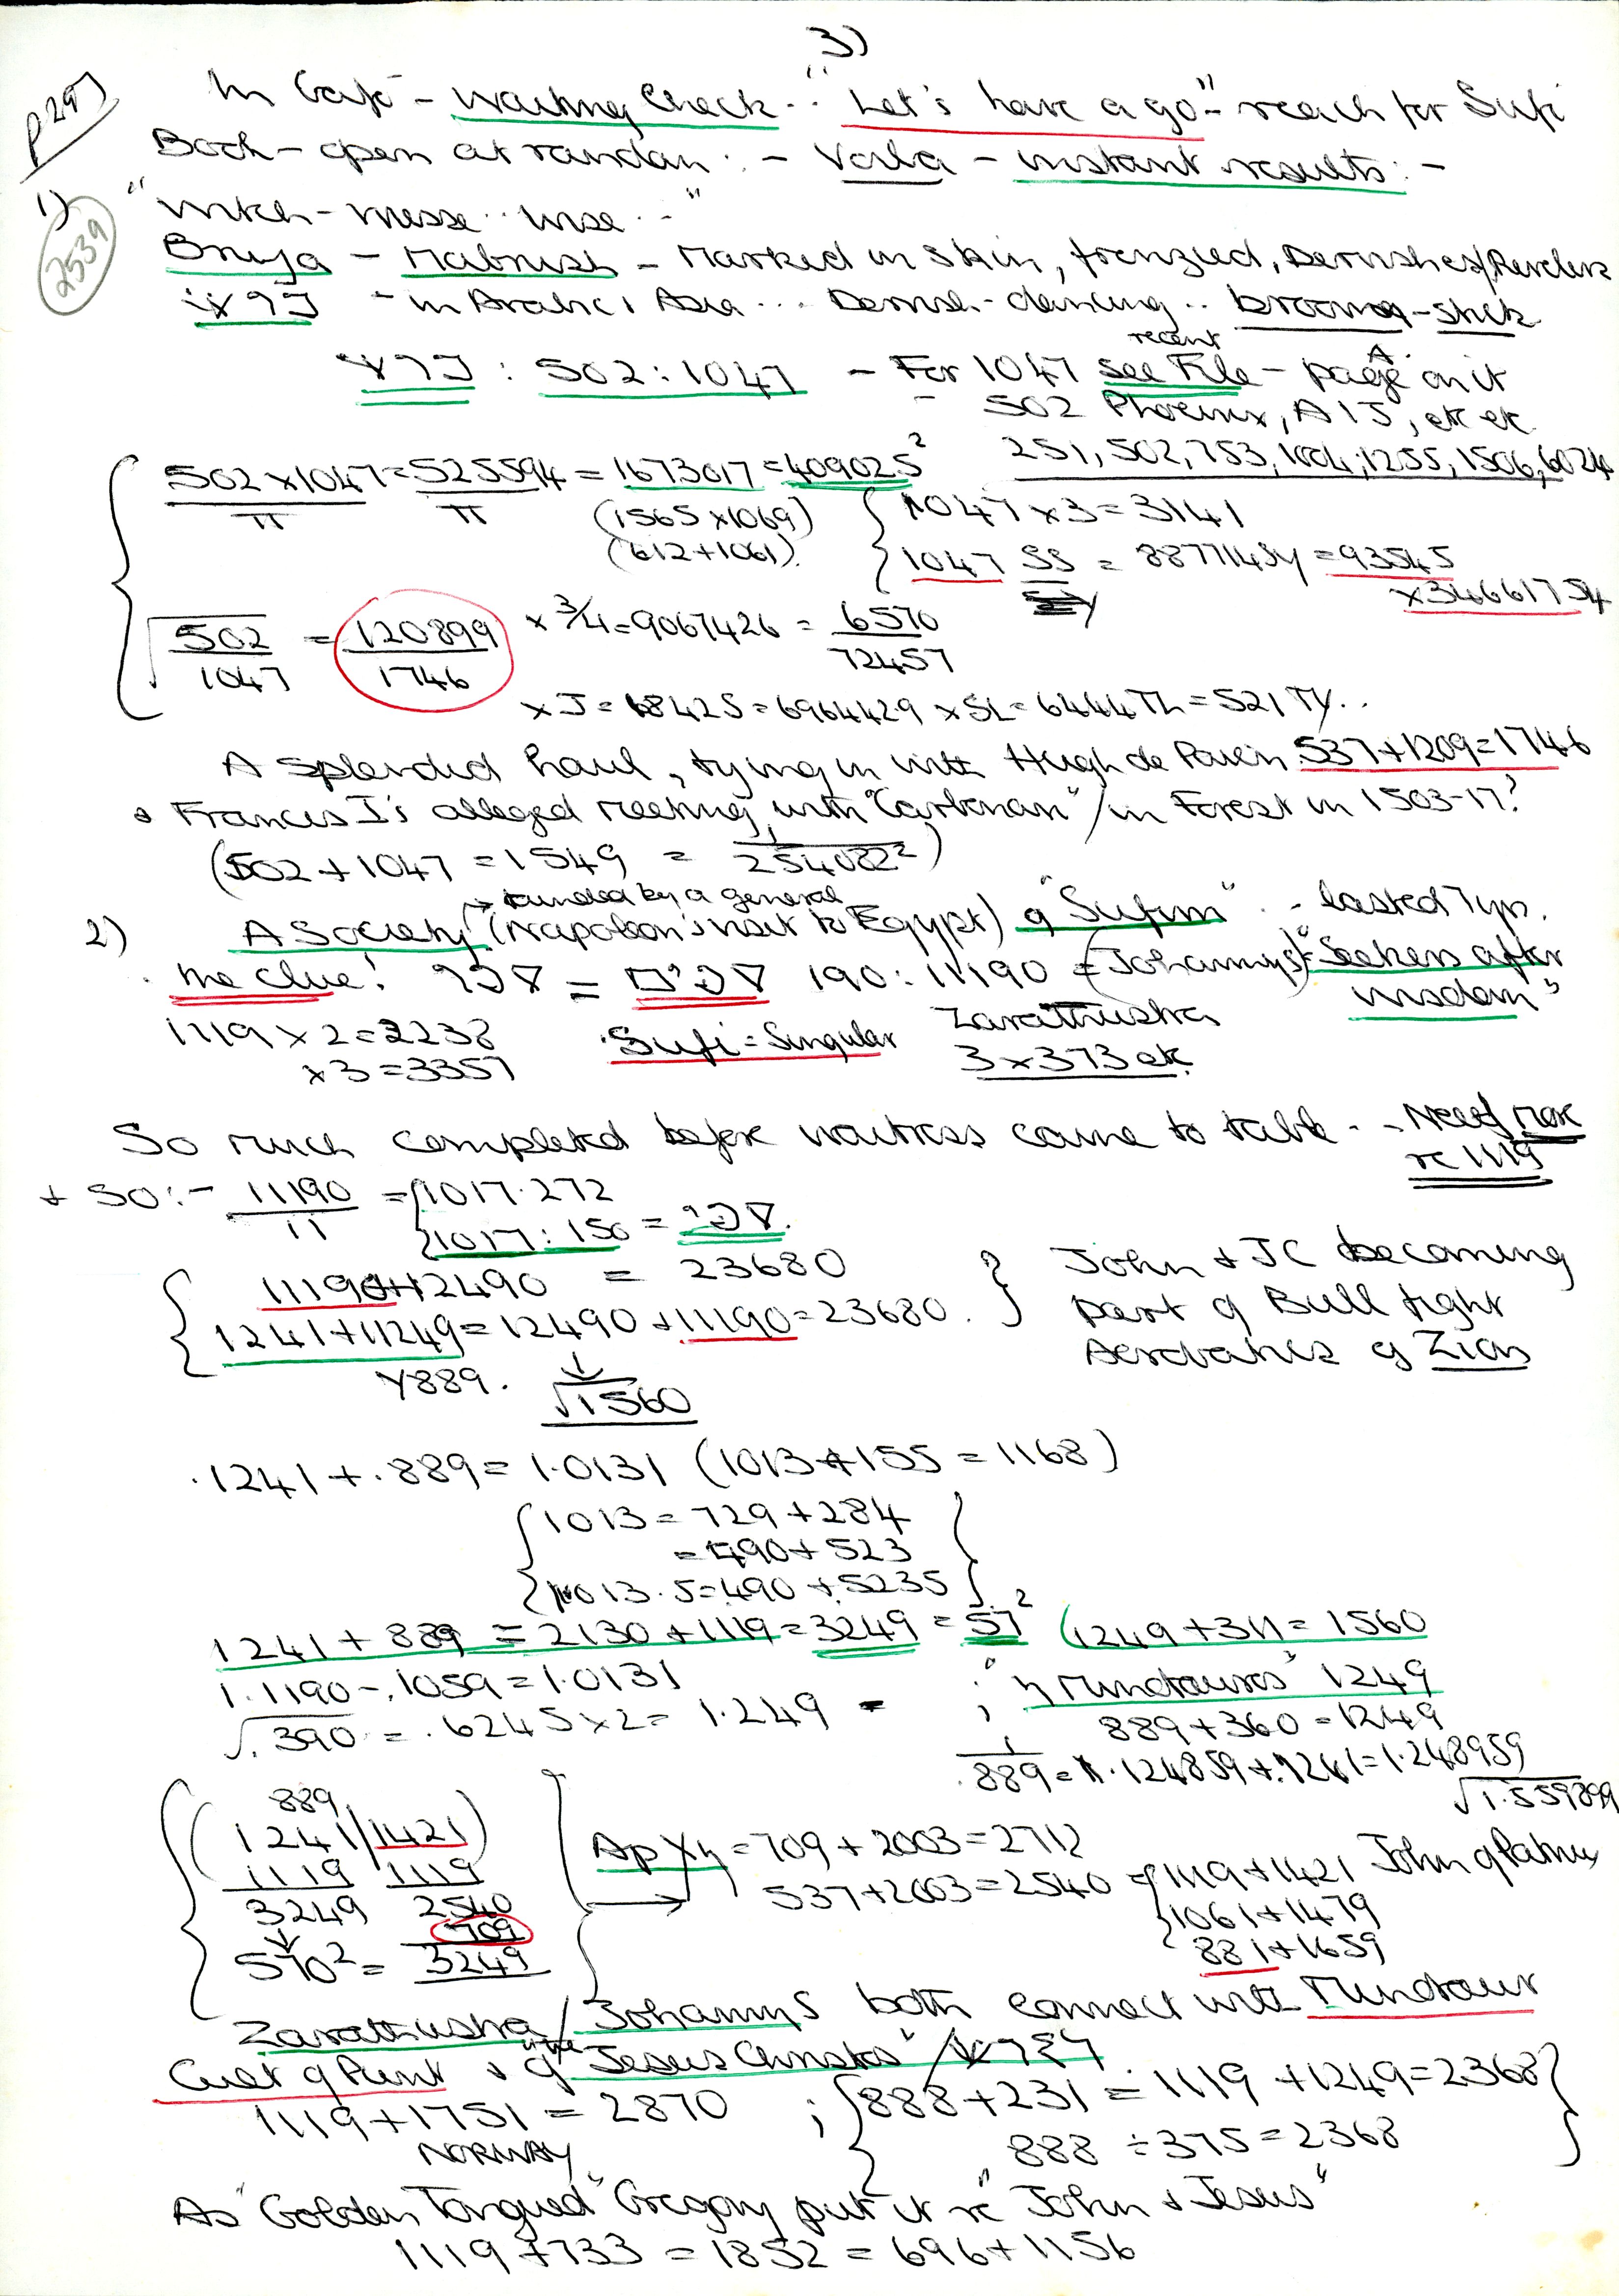 3)
P 297
In Café - Waiting Check.. "Let's have a go" - reach for Sufi
Book - open at random: - Voila - instant results: -
1)
2539
"Witch - Messe.. wise.."
Bruja - Mabrush - Marked in Skin, frenzied, Dervishes/Revelers
- in Arabic, Asia... Dervish-dancing.. broom-stick
: 502 : 1047 - For 1047 see recent File - page A. on it
502 Phoenix, A15, etc etc.
251, 502, 753, 1004, 1255, 1506, 6024
502 x 1047 / π = 525594 / π = 1673017 = 40902.5²
(1565 x 1069)
(612 + 1061).
1047 x 3 = 3141
1047 SS = 8877145Y = 93545
x 34661754
√502/1047 = 120899/1746 x 3/4 = 9067426 = 6570/72457
x J = 68425 = 6964429 x SL = 6444 Th = 521 TY..
A splendid haul, tying in with Hugh de Paven 537+1209=1746
& Frances I's alleged meeting with "Carbonari" in Forest in 1503-17?
(502 + 1047 = 1549 = 1/254082²)
→ founded by a general
2) A Society (Napoleon's visit to Egypt) of "Sufim" - lasted 7yrs.
The Clue! = 190 : 11190 = (Johannys) = "Seekers after
wisdom"
1119 x 2 = 2238
x 3 = 3357
Sufi = Singular
Zarathustra
3 x 373 etc.
So much completed before waitress came to table. - Need more
re 1119
+ So: - 11190/11 = 1017.272
1017 : 150 =
11190+12490 = 23680
1241+11249 = 12490 + 11190 = 23680.
Y889.
↓
√1560
John & JC becoming
part of Bull fight
Aerobatics of Zion
.1241 + .889 = 1.0131 (1013+155 = 1168)
1013 = 729 + 284
= 490 + 523
1013.5 = 490 + 5235
1241 + 889 = 2130 + 1119 = 3249 = 57² (1249 + 311 = 1560
1.1190 - .1059 = 1.0131
√.390 = .6245 x 2 = 1.249 = ; "η Mundrauros" 1249
889 + 360 = 1249
1/.889 = 1.124859 + .1241 = 1.248959
√1.559899
889
1241 / 1421
1119 1119
3249 2540
↓ 709
570² = 3249
Ap Xη = 709 + 2003 = 2712
537 + 2003 = 2540 = 1119 + 1421 John of Patmos
1061 + 1479
881 + 1659
Zarathustra / Johannys both connect with Mundraur
Cult of Punt & of the "Jesus Christos" /
1119 + 1751 = 2870 ;
NORWAY
888 + 231 = 1119 + 1249 = 2368
888 ÷ 375 = 2368
As "Golden Tongued" Gregory put it re "John & Jesus"
1119 + 733 = 1852 = 696 + 1156